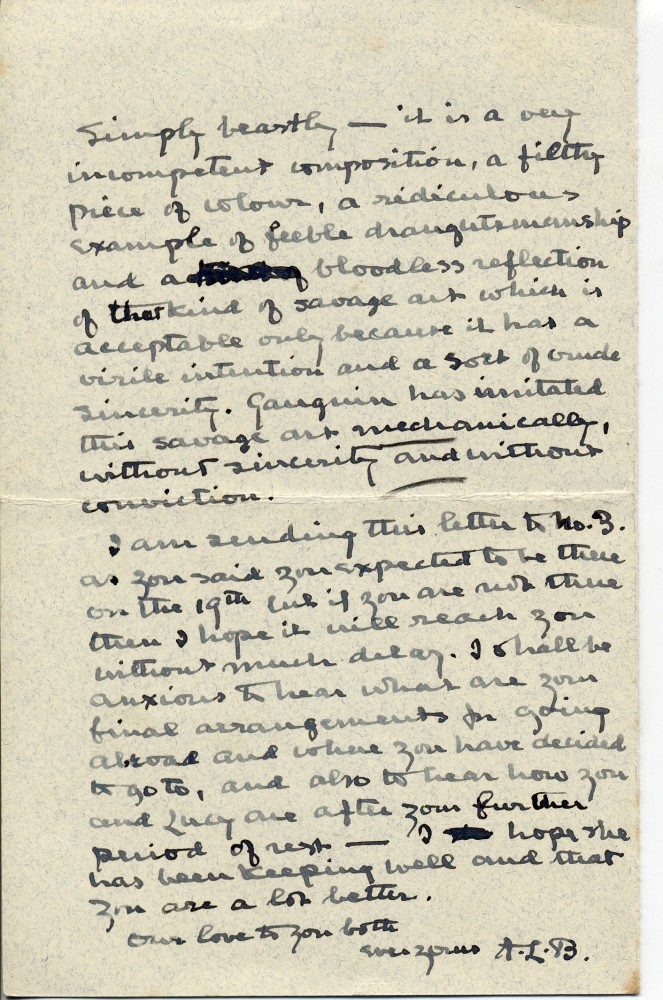 Simply beastly — it is a very
incompetent composition, a filthy
piece of colour, a ridiculous
example of feeble draughtsmanship
and a bloodless reflection
of that kind of savage art which is
acceptable only because it has a
virile intention and a sort of crude
sincerity. Gauguin has imitated
this savage art mechanically,
without sincerity and without
conviction.
I am sending this letter to No. 3.
as you said you expected to be there
on the 19th but if you are not there
then I hope it will reach you
without much delay. I shall be
anxious to hear what are your
final arrangements for going
abroad and where you have decided
to go to, and also to hear how you
and Lucy are after your further
period of rest — I hope she
has been keeping well and that
you are a lot better.
Our love to you both
ever yours A.L.B.